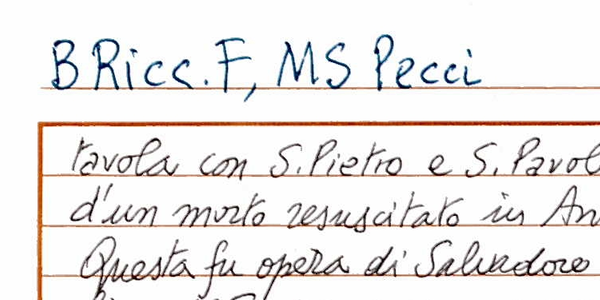 B Ricc. F, MS Pecci
tavola con S. Pietro e S. Pavol
d'un morto resuscitato in An
Questa fu opera di Salvadore